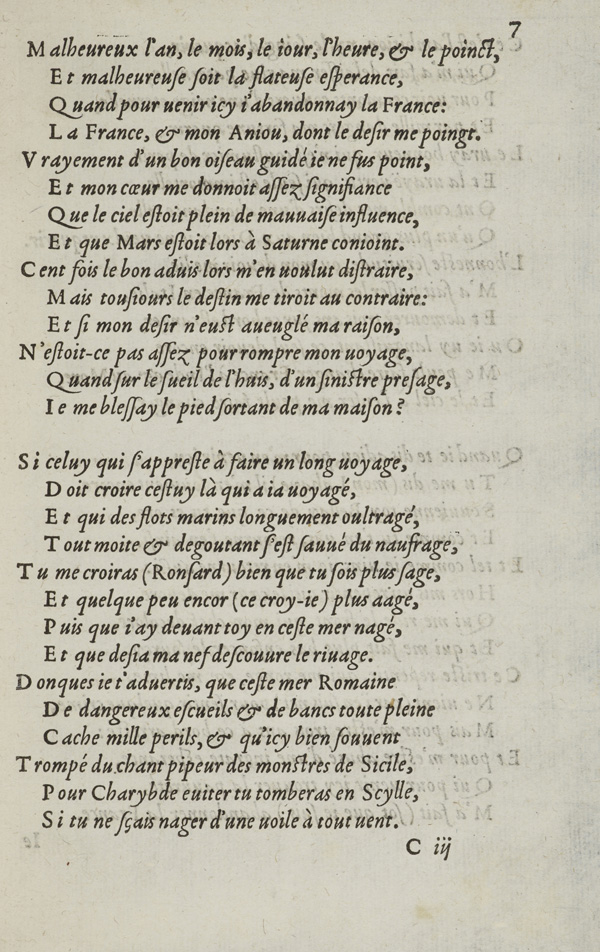 7
Malheureux l'an, le mois, le iour, l'heure, & le poinct,
Et malheureuſe ſoit la flateuſe eſperance,
Quand pour uenir icy i'abandonnay la France:
La France, & mon Aniou, dont le deſir me poingt.
Vrayement d'un bon oiſeau guidé ie ne fus point,
Et mon cœur me donnoit aſſez ſignifiance
Que le ciel eſtoit plein de mauuaiſe influence,
Et que Mars eſtoit lors à Saturne conioint.
Cent fois le bon aduis lors m'en uoulut diſtraire,
Mais touſiours le deſtin me tiroit au contraire:
Et ſi mon deſir n'euſt aueuglé ma raiſon,
N'eſtoit-ce pas aſſez pour rompre mon uoyage,
Quand ſur le ſueil de l'huis, d'un ſiniſtre preſage,
Ie me bleſſay le pied ſortant de ma maiſon?
Si celuy qui ſ'appreſte à faire un long uoyage,
Doit croire ceſtuy là qui a ia uoyagé,
Et qui des flots marins longuement oultragé,
Tout moite & degoutant ſ'eſt ſauué du naufrage,
Tu me croiras (Ronſard) bien que tu ſois plus ſage,
Et quelque peu encor (ce croy-ie) plus aagé,
Puis que i'ay deuant toy en ceſte mer nagé,
Et que deſia ma nef deſcouure le riuage.
Donques ie t'aduertis, que ceſte mer Romaine
De dangereux eſcueils & de bancs toute pleine
Cache mille perils, & qu'icy bien ſouuent
Trompé du chant pipeur des monſtres de Sicile,
Pour Charybde euiter tu tomberas en Scylle,
Si tu ne ſçais nager d'une uoile à tout uent.
C iij